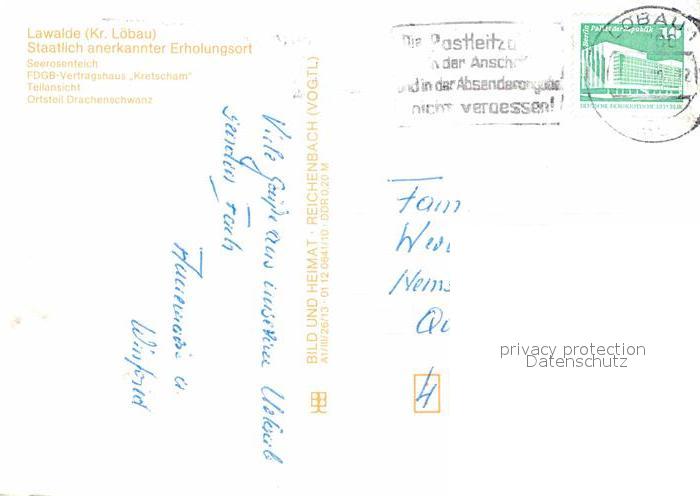 Lawalde (Kr. Löbau)
Staatlich anerkannter Erholungsort
Seerosenteich
FDGB-Vertragshaus „Kretscham"
Teilansicht
Ortsteil Drachenschwanz
Die Postleitza
in der Anschr
und in der Absenderangabe
nicht vergessen!
LÖBAU 1
Berlin Palast der Republik
10
DEUTSCHE DEMOKRATISCHE REPUBLIK
BILD UND HEIMAT · REICHENBACH (VOGTL)
A1/III/26/13 · 01 12 0641/10 · DDR 0,20 M
Viele Grüße aus unserem Urlaub
senden Euch
Annemarie u.
Winfried
Fam
Wer
4
privacy protection
Datenschutz